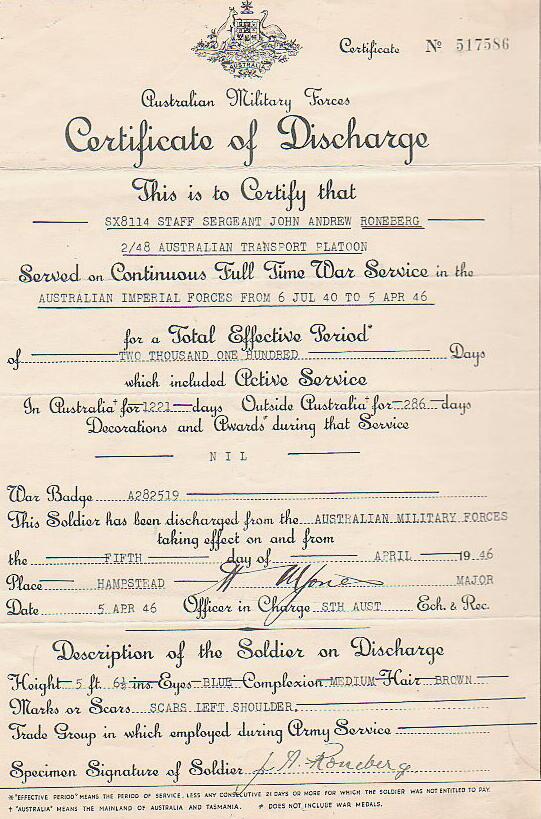 AUSTRALIA
Certificate No 517586
Australian Military Forces
Certificate of Discharge
This is to Certify that
SX8114 STAFF SERGEANT JOHN ANDREW RONEBERG
2/48 AUSTRALIAN TRANSPORT PLATOON
Served on Continuous Full Time War Service in the
AUSTRALIAN IMPERIAL FORCES FROM 6 JUL 40 TO 5 APR 46
for a Total Effective Period*
of TWO THOUSAND ONE HUNDRED Days
which included Active Service
In Australia† for 1221 days Outside Australia† for 286 days
Decorations and Awards≠ during that Service
NIL
War Badge A282519
This Soldier has been discharged from the AUSTRALIAN MILITARY FORCES
taking effect on and from
the FIFTH day of APRIL 1946
Place HAMPSTEAD MAJOR
Date 5 APR 46 Officer in Charge STH AUST Ech. & Rec.
Description of the Soldier on Discharge
Height 5 ft. 6½ ins. Eyes BLUE Complexion MEDIUM Hair BROWN
Marks or Scars SCARS LEFT SHOULDER.
Trade Group in which employed during Army Service
Specimen Signature of Soldier J. A. Roneberg
*"EFFECTIVE PERIOD" MEANS THE PERIOD OF SERVICE, LESS ANY CONSECUTIVE 21 DAYS OR MORE FOR WHICH THE SOLDIER WAS NOT ENTITLED TO PAY.
† "AUSTRALIA" MEANS THE MAINLAND OF AUSTRALIA AND TASMANIA. ≠ DOES NOT INCLUDE WAR MEDALS.